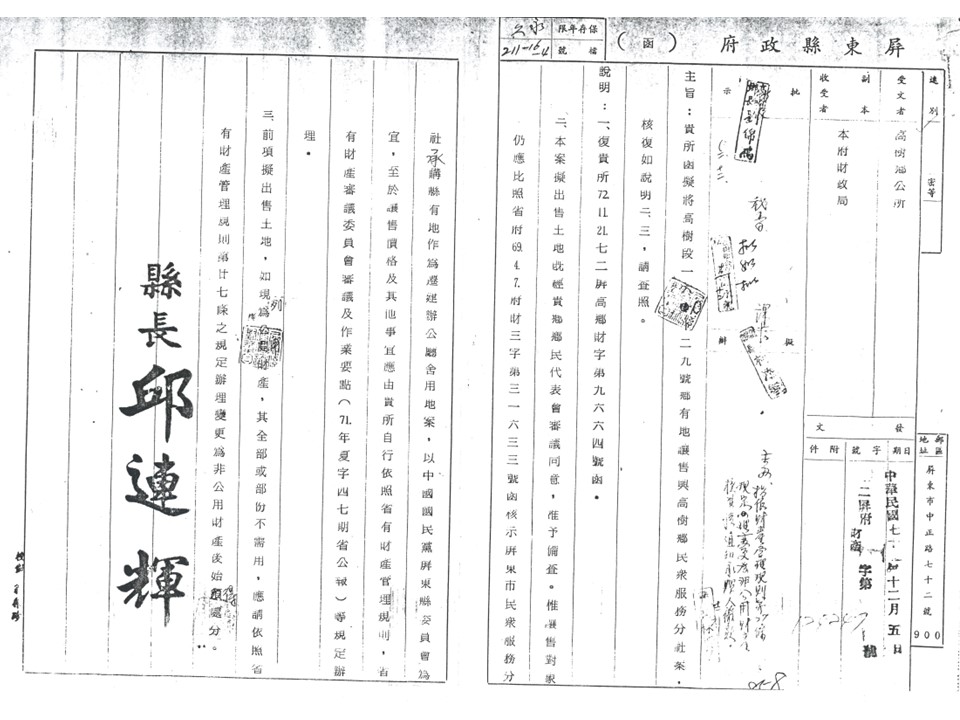 屏東縣政府（函）
保存年限
檔號
永久
211-16-4
速別
密等
受文者
高樹鄉公所
副本
收受者
本府財政局
批示
擬辦
發文
日期
中華民國七十二年十二月五日
字號
屏府財產字第
號
附件
郵區地址
屏東市中正路七十二號
900
主旨：貴所函擬將高樹段一
二九號鄉有地讓售與高樹鄉民衆服務分社案，
核復如說明二、三，請查照。
說明：一、復貴所72.11.21.七二屏高鄉財字第九六六四號函。
二、本案擬出售土地既經貴鄉鄉民代表會審議同意，准予備查。惟讓售對象
仍應比照省府69.4.7.府財三字第三一六三三號函核示屏東市民衆服務分
社承購縣有地作為遷建辦公廳舍用地案，以中國國民黨屏東縣委員會為
宜，至於讓售價格及其他事宜應由貴所自行依照省有財產管理規則，省
有財產審議委員會審議及作業要點（71.年夏字四七期省公報）等規定辦
理。
三、前項擬出售土地，如現為公用財產，其全部或部份不需用，應請依照省
列
有財產管理規則第廿七條之規定辦理變更為非公用財產後始得處分。
縣長邱連輝